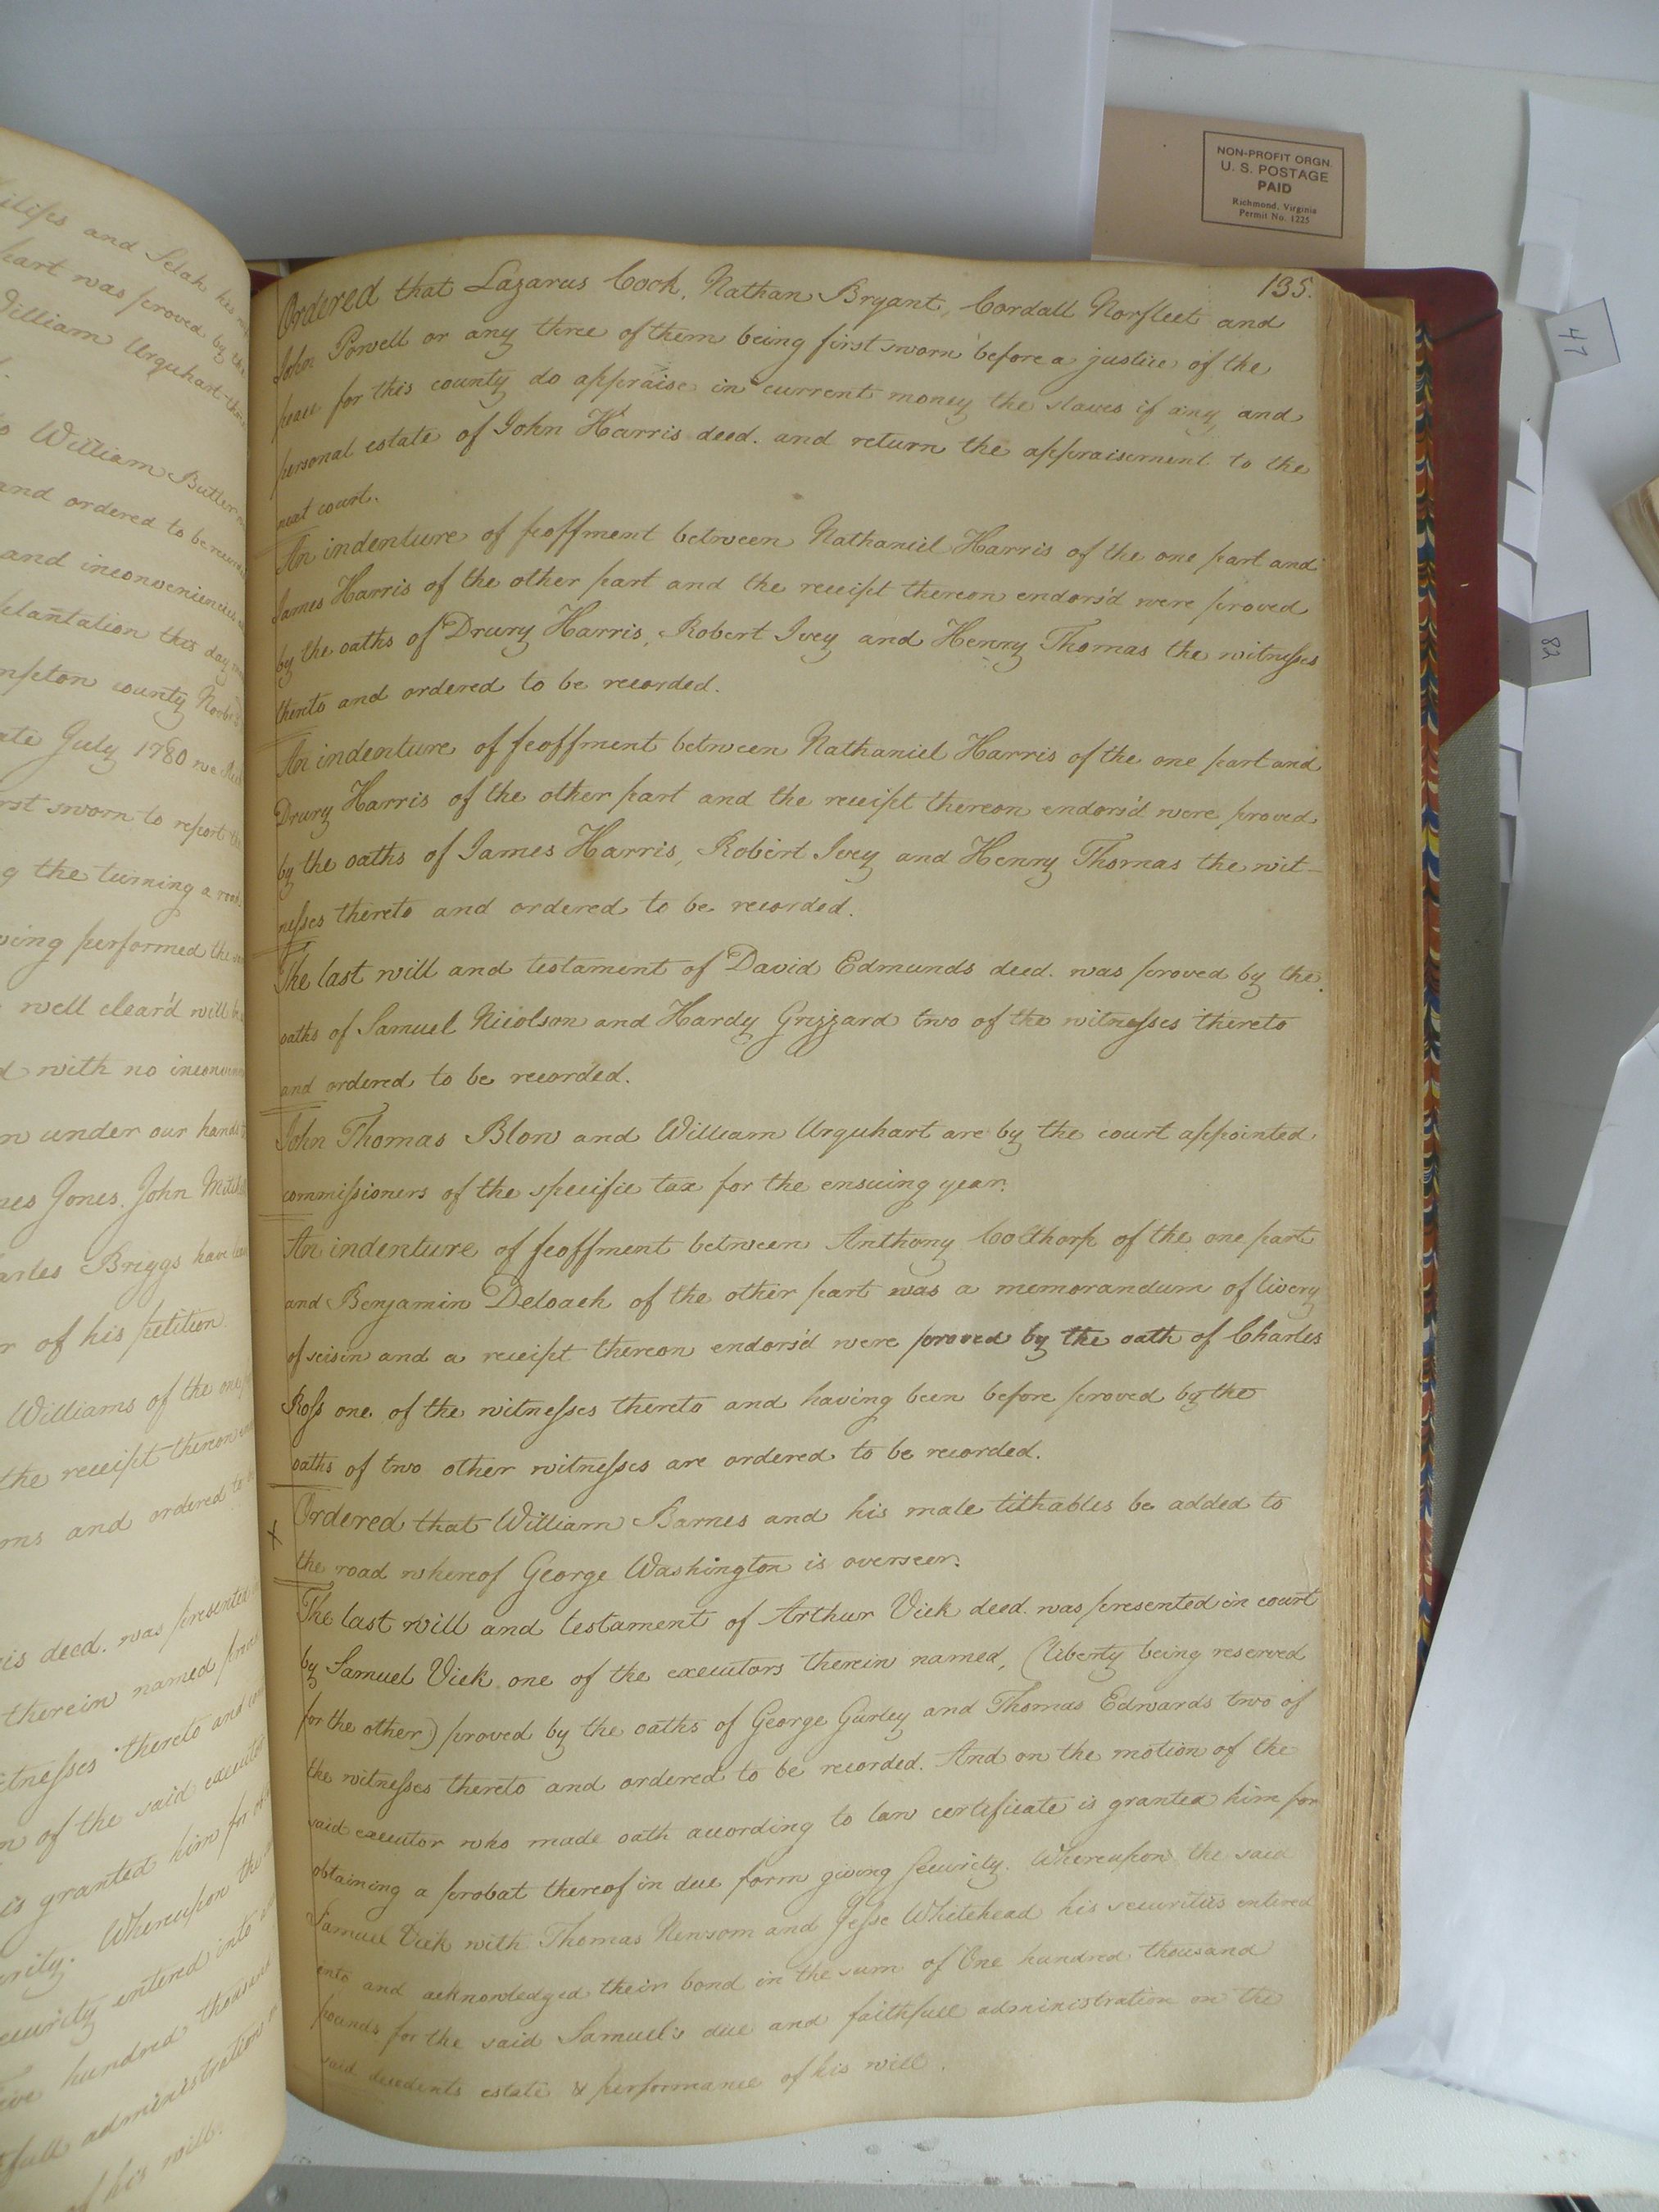 ilips and Selah his
part was proved by the
William Urquhart
to William Butler
and ordered to be
and inconveniencies
plantation this day
mpton county
ate July 1780 we
rst sworn to report
g the turning a road
ving performed the
well clear'd will be
d with no
n under our hands
mes Jones. John
arles Briggs have
r of his petition
Williams of the one
the receipt thereon
ons and ordered to
is deed. was presented
therein named
itnesses thereto and
n of the said executor
is granted him for
urity. Whereupon the
ecurity entered into
ive hundred thousand
full administration
of his will.
135.
Ordered that Lazarus Cook, Nathan Bryant, Cordall Norfleet and
John Powell or any three of them being first sworn before a justice of the
peace for this county do appraise in current money the slaves if any and
personal estate of John Harris deed. and return the appraisement to the
next court.
An indenture of feoffment between Nathaniel Harris of the one part and
James Harris of the other part and the receipt thereon endors'd were proved
by the oaths of Drury Harris, Robert Ivey and Henry Thomas the witnesses
thereto and ordered to be recorded.
An indenture of feoffment between Nathaniel Harris of the one part and
Drury Harris of the other part and the receipt thereon endors'd were proved
by the oaths of James Harris, Robert Ivey and Henry Thomas the wit-
nesses thereto and ordered to be recorded.
The last will and testament of David Edmunds deed. was proved by the
oaths of Samuel Nicolson and Hardy Grizzard two of the witnesses thereto
and ordered to be recorded.
John Thomas Blow and William Urquhart are by the court appointed
commissioners of the specific tax for the ensuing year.
An indenture of feoffment between Anthony Colthorp of the one part
and Benjamin Deloach of the other part was a memorandum of livery
of seisin and a receipt thereon endors'd were proved by the oath of Charles
Ross one of the witnesses thereto and having been before proved by the
oaths of two other witnesses are ordered to be recorded.
x Ordered that William Barnes and his male tithables be added to
the road whereof George Washington is overseer.
The last will and testament of Arthur Vick deed. was presented in court
by Samuel Vick one of the executors therein named, (liberty being reserved
for the other) proved by the oaths of George Gurley and Thomas Edwards two of
the witnesses thereto and ordered to be recorded. And on the motion of the
said executor who made oath according to law certificate is granted him for
obtaining a probat thereof in due form giving security. Whereupon the said
Samuel Vick with Thomas Newsom and Jesse Whitehead his securities entered
into and acknowledged their bond in the sum of One hundred thousand
pounds for the said Samuel's due and faithfull administration on the
said decedents estate & performance of his will.
NON-PROFIT ORGN.
U. S. POSTAGE
PAID
Richmond, Virginia
Permit No. 1225
47
82